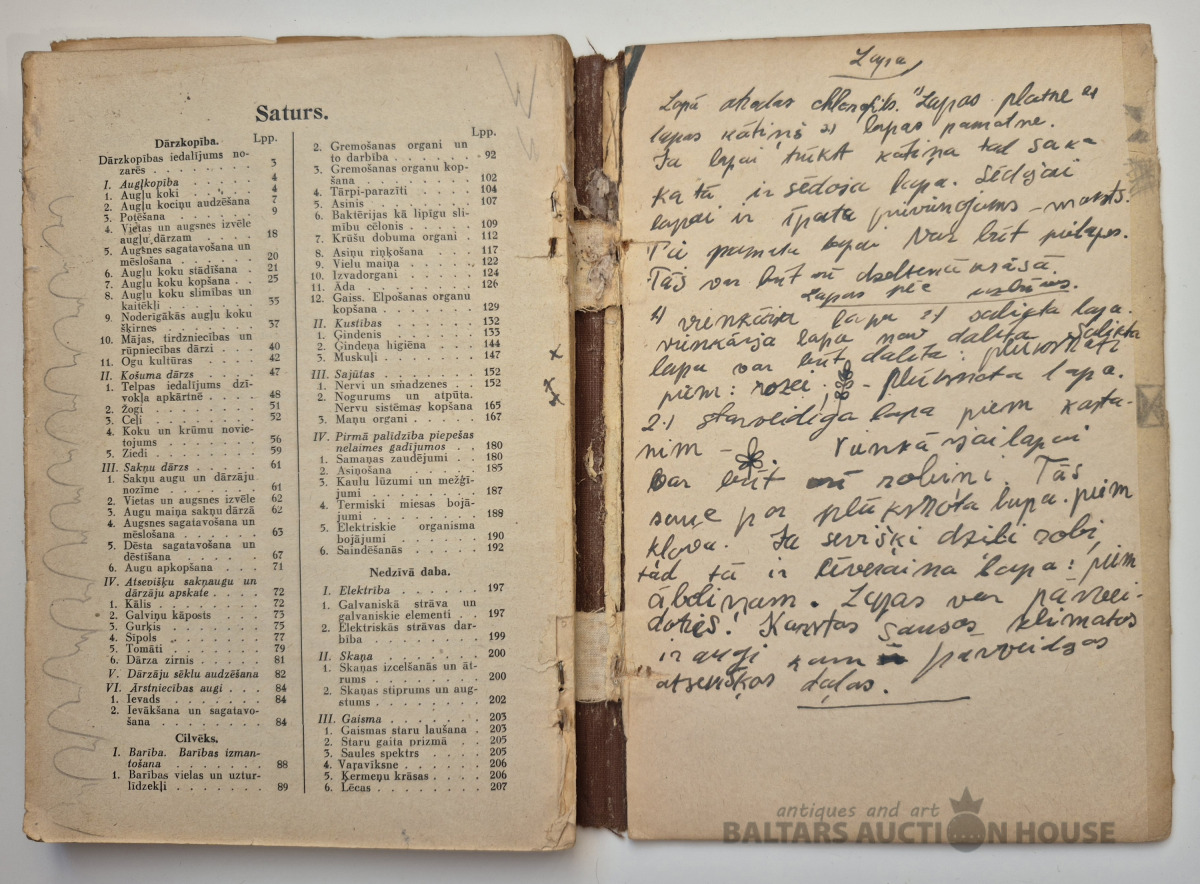 Saturs.
Lpp.
Dārzkopība.
Dārzkopības iedalījums no-
zarēs . . . . . . . 3
I. Augļkopība . . . . . 4
1. Augļu koki . . . . . 4
2. Augļu kociņu audzēšana 7
3. Potēšana . . . . . . 9
4. Vietas un augsnes izvēle
augļu dārzam . . . . 18
5. Augsnes sagatavošana un
mēslošana . . . . . . 20
6. Augļu koku stādīšana . 21
7. Augļu koku kopšana . . 25
8. Augļu koku slimības un
kaitēkļi . . . . . . . 35
9. Noderīgākās augļu koku
šķirnes . . . . . . . 37
10. Mājas, tirdzniecības un
rūpniecības dārzi . . . 40
11. Ogu kultūras . . . . 42
II. Košuma dārzs . . . . 47
1. Telpas iedalījums dzī-
vokļa apkārtnē . . . . 48
2. Žogi . . . . . . . . 51
3. Ceļi . . . . . . . . 52
4. Koku un krūmu novie-
tojums . . . . . . . 56
5. Ziedi . . . . . . . . 59
III. Sakņu dārzs . . . . . 61
1. Sakņu augu un dārzāju
nozīme . . . . . . . 61
2. Vietas un augsnes izvēle 62
3. Augu maiņa sakņu dārzā 62
4. Augsnes sagatavošana un
mēslošana . . . . . . 63
5. Dēsta sagatavošana un
dēstīšana . . . . . . 67
6. Augu apkopšana . . . 71
IV. Atsevišķu sakņaugu un
dārzāju apskate . . . . 72
1. Kālis . . . . . . . . 72
2. Galviņu kāposts . . . 73
3. Gurķis . . . . . . . 75
4. Sīpols . . . . . . . 77
5. Tomāti . . . . . . . 79
6. Dārza zirnis . . . . . 81
V. Dārzāju sēklu audzēšana 82
VI. Ārstniecības augi . . . 84
1. Ievads . . . . . . . 84
2. Ievākšana un sagatavo-
šana . . . . . . . . 84
Cilvēks.
I. Barība. Barības izman-
tošana . . . . . . . 88
1. Barības vielas un uztur-
līdzekļi . . . . . . . 89
Lpp.
2. Gremošanas organi un
to darbība . . . . . . 92
3. Gremošanas organu kop-
šana . . . . . . . . 102
4. Tārpi-parazīti . . . . 104
5. Asinis . . . . . . . 107
6. Baktērijas kā lipīgu sli-
mību cēlonis . . . . . 109
7. Krūšu dobuma organi . 112
8. Asiņu riņķošana . . . 117
9. Vielu maiņa . . . . . 122
10. Izvadorgani . . . . . 124
11. Āda . . . . . . . . 126
12. Gaiss. Elpošanas organu
kopšana . . . . . . . 129
II. Kustības . . . . . . 132
1. Ģindenis . . . . . . 133
2. Ģindeņa higiēna . . . 144
3. Muskuļi . . . . . . . 147
III. Sajūtas . . . . . . . 152
1. Nervi un smadzenes . . 152
2. Nogurums un atpūta.
Nervu sistēmas kopšana 165
3. Maņu organi . . . . . 167
IV. Pirmā palīdzība piepešas
nelaimes gadījumos . . 180
1. Samaņas zaudējumi . . 180
2. Asiņošana . . . . . . 185
3. Kaulu lūzumi un mežģī-
jumi . . . . . . . . 187
4. Termiski miesas bojā-
jumi . . . . . . . . 188
5. Elektriskie organisma
bojājumi . . . . . . 190
6. Saindēšanās . . . . . 192
Nedzīvā daba.
I. Elektrība . . . . . . 197
1. Galvaniskā strāva un
galvaniskie elementi . . 197
2. Elektriskās strāvas dar-
bība . . . . . . . . 199
II. Skaņa . . . . . . . 200
1. Skaņas izcelšanās un āt-
rums . . . . . . . . 200
2. Skaņas stiprums un aug-
stums . . . . . . . . 202
III. Gaisma . . . . . . . 203
1. Gaismas staru laušana . 203
2. Staru gaita prizmā . . 205
3. Saules spektrs . . . . 205
4. Varavīksne . . . . . 206
5. Ķermeņu krāsas . . . . 206
6. Lēcas . . . . . . . . 207
Lapa
Lapā atrodas chlorofils. 1) Lapas platne
lapas kātiņš 3) lapas pamatne.
Ja lapai trūkst kātiņa tad saka
ka tā ir sēdoša lapa. Sēdošai
lapai ir īpats pievienojums – maksts.
Pie pamata lapai var būt pielapes.
Tās var būt dzeltenā krāsā.
Lapas pēc
1) vienkārša lapa 2) salikta lapa.
vienkārša lapa nav dalīta. Salikta
lapa var būt dalīta: plūksnoti
piem: rozei – plūksnota lapa.
2.) starveidīga lapa piem kasta-
nim – . Vienkāršai lapai
var būt robiņi. Tās
sauc par plūksnota lapa. piem
kļava. Ja sevišķi dziļi robi,
tad tā ir lapa: piem
Lapas var pārvei-
doties! Karstos sausos klimatos
ir augi kam pārveidojas
atsevišķas daļas.
antiques and art
BALTARS AUCTION HOUSE